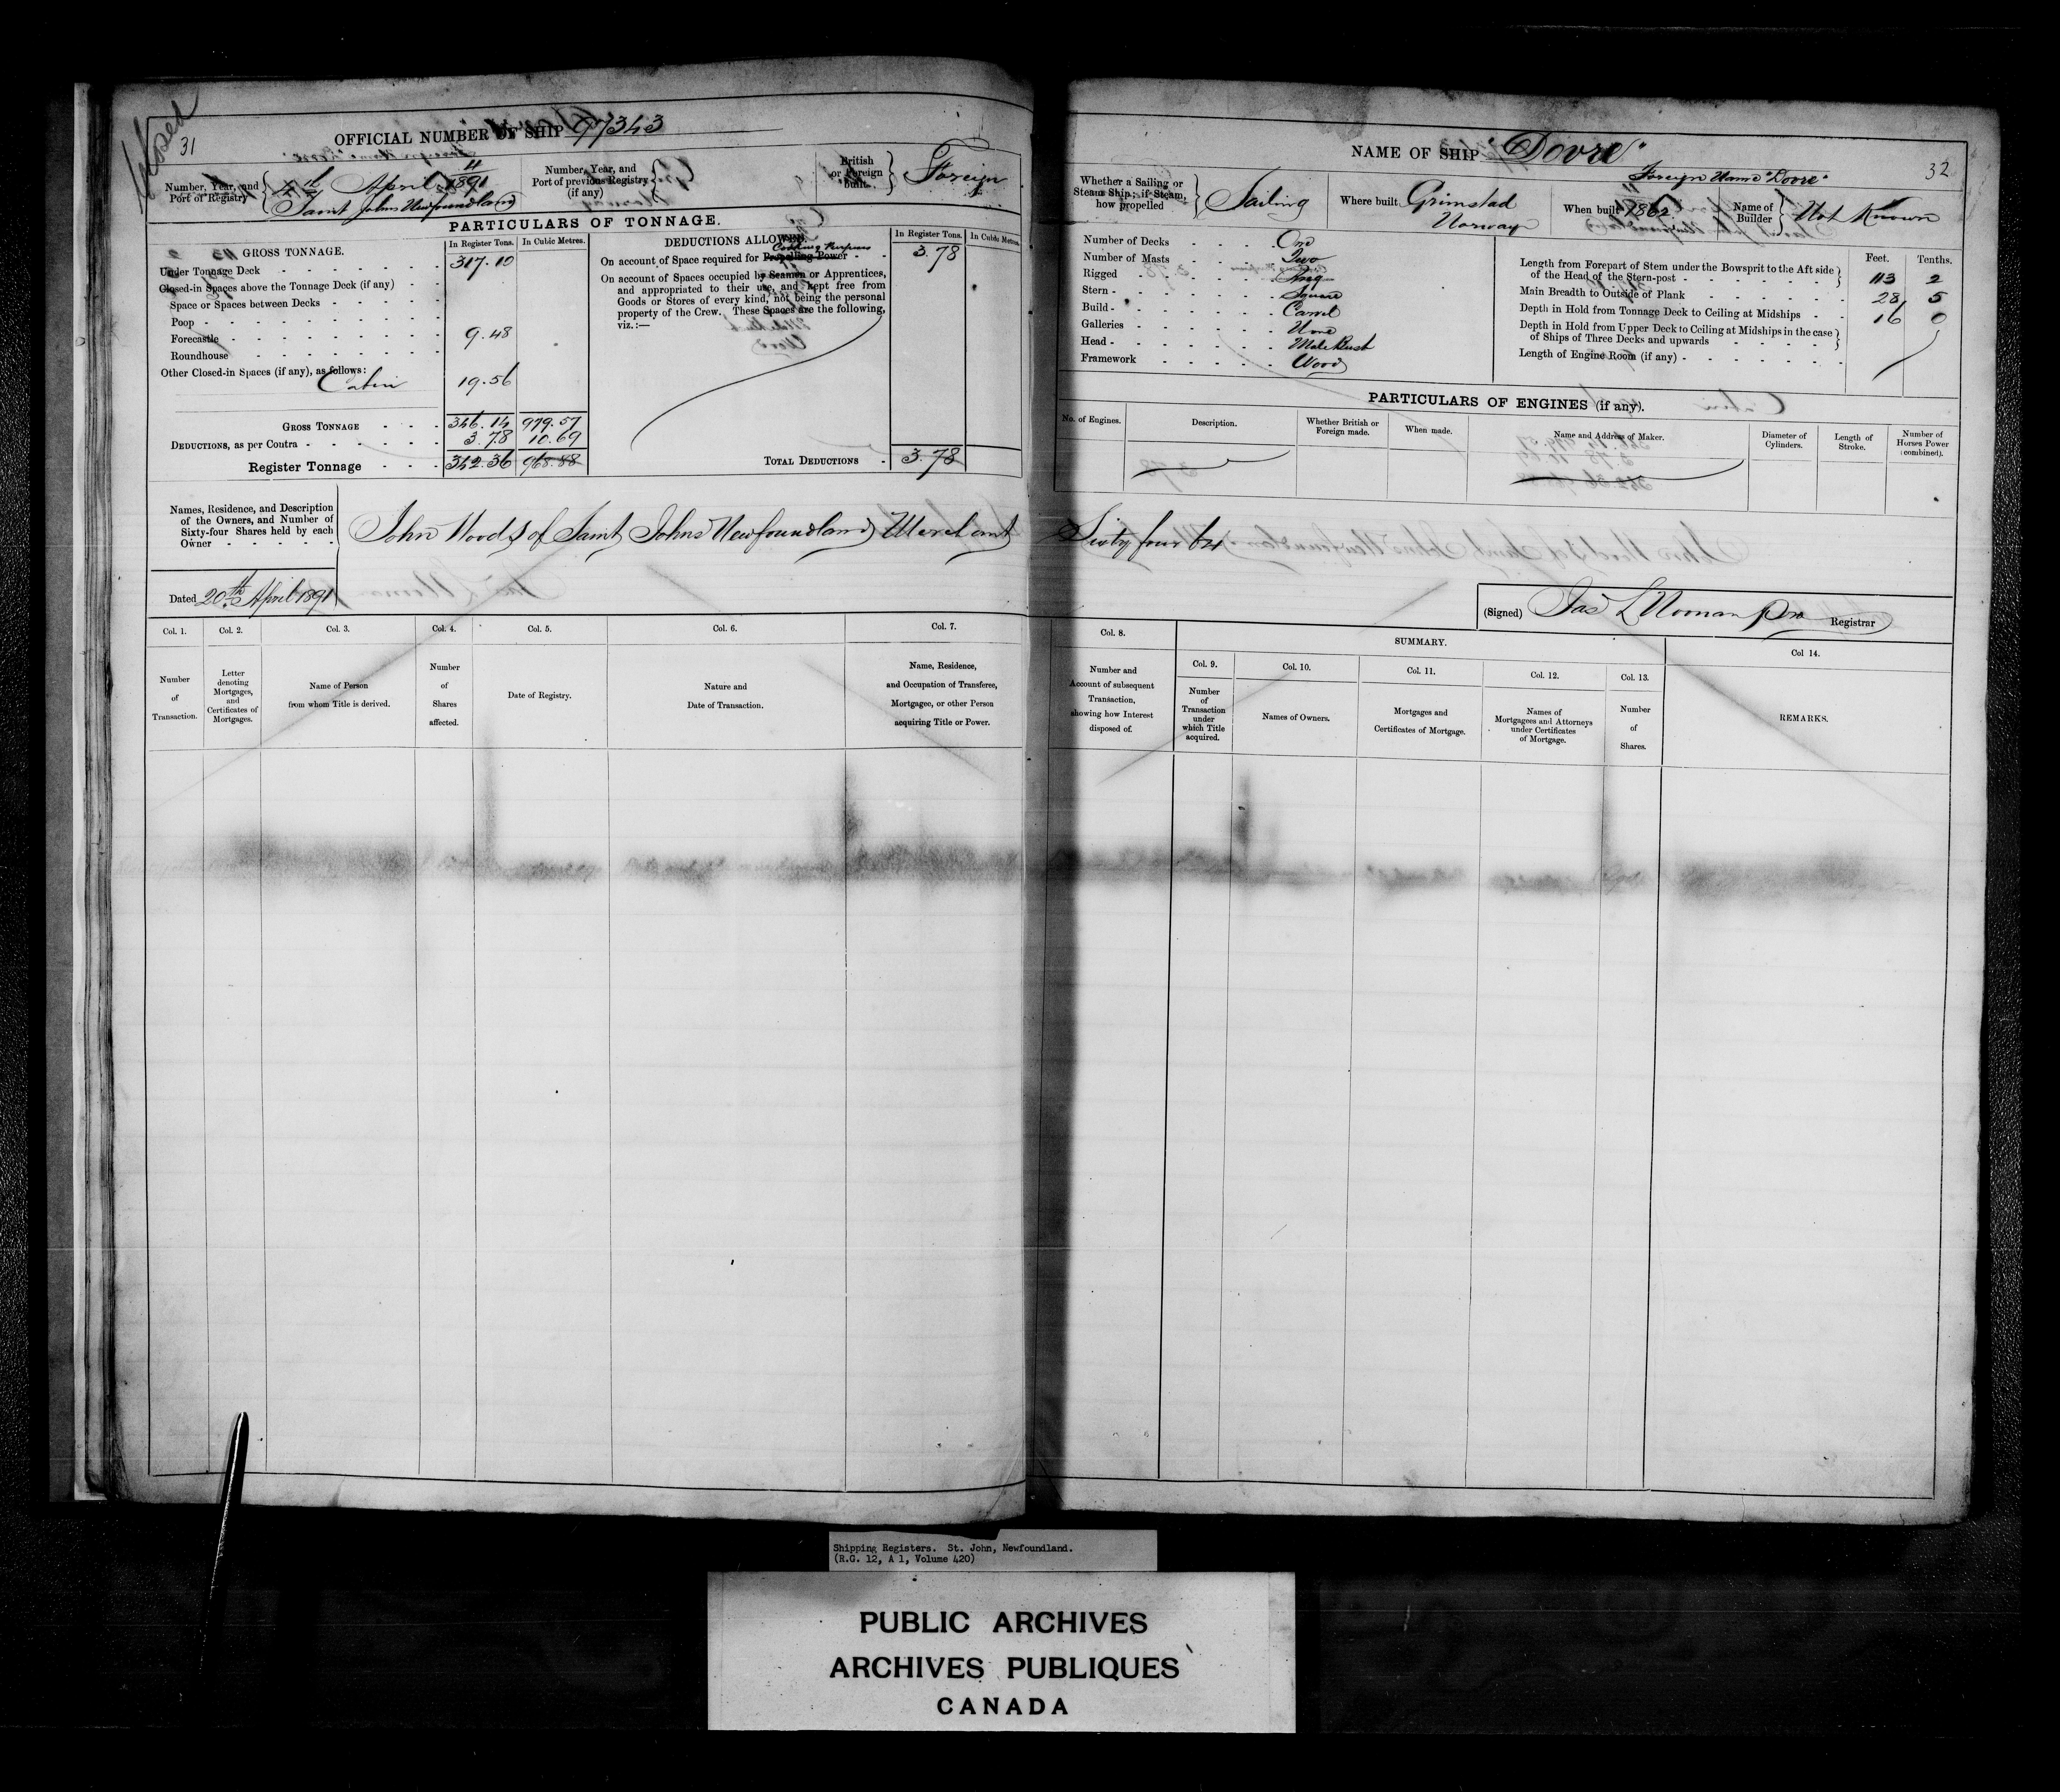 31
OFFICIAL NUMBER OF SHIP 97343
Number, Year, and Port of Registry
April 1891
Saint Johns Newfoundland
Number, Year, and Port of previous Registry (if any)
British or Foreign built.
Foreign
PARTICULARS OF TONNAGE.
GROSS TONNAGE.
In Register Tons.
In Cubic Metres.
Under Tonnage Deck 317.10
Closed-in Spaces above the Tonnage Deck (if any)
Space or Spaces between Decks
Poop
Forecastle 9.48
Roundhouse
Other Closed-in Spaces (if any), as follows:
Cabin 19.56
GROSS TONNAGE 346.14 979.57
DEDUCTIONS, as per Contra 3.78 10.69
Register Tonnage 342.36 968.88
DEDUCTIONS ALLOWED.
In Register Tons.
In Cubic Metres.
Cooking Purposes
On account of Space required for Propelling Power 3.78
On account of Spaces occupied by Seamen or Apprentices,
and appropriated to their use, and kept free from
Goods or Stores of every kind, not being the personal
property of the Crew. These Spaces are the following,
viz.:—
TOTAL DEDUCTIONS 3.78
Names, Residence, and Description
of the Owners, and Number of
Sixty-four Shares held by each
Owner
John Woods of Saint Johns Newfoundland Merchant Sixty four 64
Dated 20th April 1891
Col. 1.
Number of Transaction.
Col. 2.
Letter denoting Mortgages, and Certificates of Mortgages.
Col. 3.
Name of Person from whom Title is derived.
Col. 4.
Number of Shares affected.
Col. 5.
Date of Registry.
Col. 6.
Nature and Date of Transaction.
Col. 7.
Name, Residence, and Occupation of Transferee, Mortgagee, or other Person acquiring Title or Power.
32
NAME OF SHIP "Dovre"
Foreign Name "Dovre"
Whether a Sailing or Steam Ship; if Steam, how propelled
Sailing
Where built
Grimstad
Norway
When built 1862
Name of Builder
Not Known
Number of Decks One
Number of Masts Two
Rigged
Stern Square
Build Carvel
Galleries None
Head Male Bust
Framework Wood
Feet. Tenths.
Length from Forepart of Stem under the Bowsprit to the Aft side
of the Head of the Stern-post 113 2
Main Breadth to Outside of Plank 28 5
Depth in Hold from Tonnage Deck to Ceiling at Midships 16 0
Depth in Hold from Upper Deck to Ceiling at Midships in the case
of Ships of Three Decks and upwards
Length of Engine Room (if any)
PARTICULARS OF ENGINES (if any).
No. of Engines.
Description.
Whether British or Foreign made.
When made.
Name and Address of Maker.
Diameter of Cylinders.
Length of Stroke.
Number of Horses Power (combined).
(Signed) Jas L Noonan pro Registrar
Col. 8.
Number and Account of subsequent Transaction, showing how Interest disposed of.
SUMMARY.
Col. 9.
Number of Transaction under which Title acquired.
Col. 10.
Names of Owners.
Col. 11.
Mortgages and Certificates of Mortgage.
Col. 12.
Names of Mortgagees and Attorneys under Certificates of Mortgage.
Col. 13.
Number of Shares.
Col 14.
REMARKS.
Shipping Registers. St. John, Newfoundland.
(R.G. 12, A 1, Volume 420)
PUBLIC ARCHIVES
ARCHIVES PUBLIQUES
CANADA